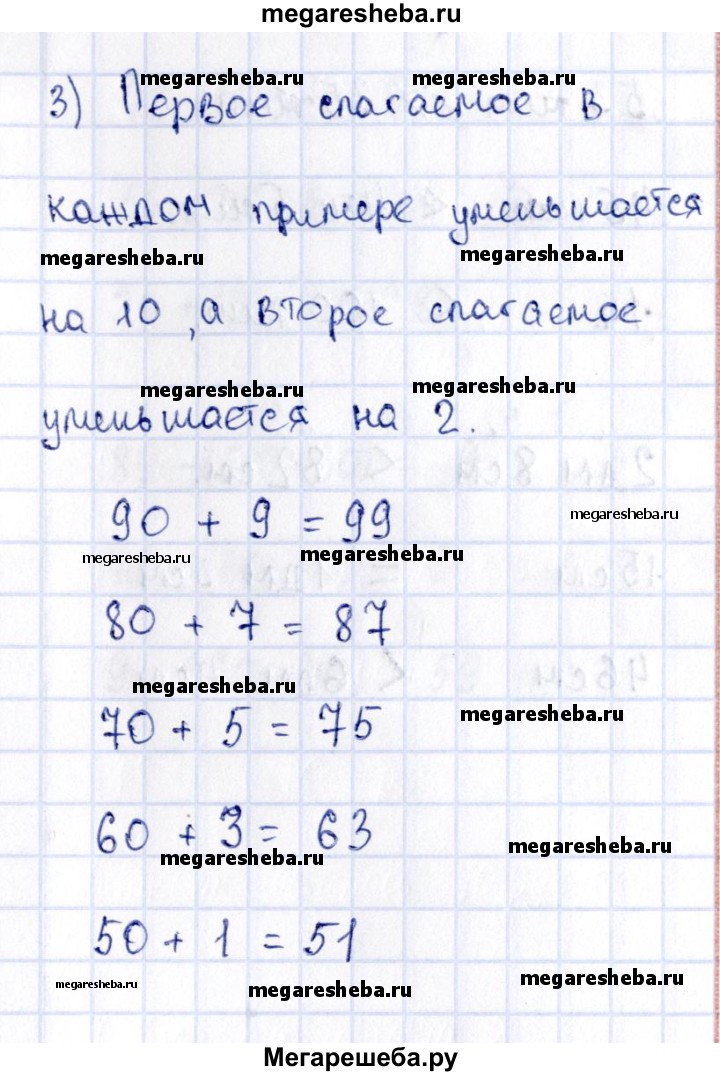 megaresheba.ru
megaresheba.ru megaresheba.ru
3) Первое слагаемое в
каждом примере уменьшается
megaresheba.ru megaresheba.ru
на 10, а второе слагаемое
megaresheba.ru megaresheba.ru
уменьшается на 2.
90 + 9 = 99
megaresheba.ru
megaresheba.ru megaresheba.ru
80 + 7 = 87
megaresheba.ru
70 + 5 = 75
megaresheba.ru
60 + 3 = 63
megaresheba.ru
megaresheba.ru
50 + 1 = 51
megaresheba.ru megaresheba.ru megaresheba.ru
Мегарешеба.ру